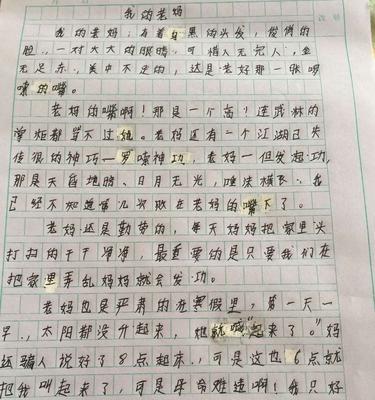 我的老妈
我的老妈，有着乌黑的头发，俊俏的
脸，一对大大的眼睛，可谓人无完人，金
无足赤，美中不足的，还是老妈那一张啰
嗦的嘴。
老妈的嘴啊！那是一个高！连武林的
掌柜都算不过她。老妈还有一个江湖已失
传很的神巧—罗嗦神功，老妈一但发起功，
那是天昏地暗、日月无光，唾沫横飞、我
已经不知道第几次败在老妈的嘴下了。
老妈还是勤劳的，每天妈妈把家里头
打扫的干干净净，最重要的是只要我们在
把家里弄乱妈妈就会发功。
老妈也是严肃的在寒假里，第一天一
早，太阳都没升起来，她就喊"起来了。"妈
还骗人说好了8点起来，可是这也6点就
把我叫起来了，可是年命难违啊！我只好